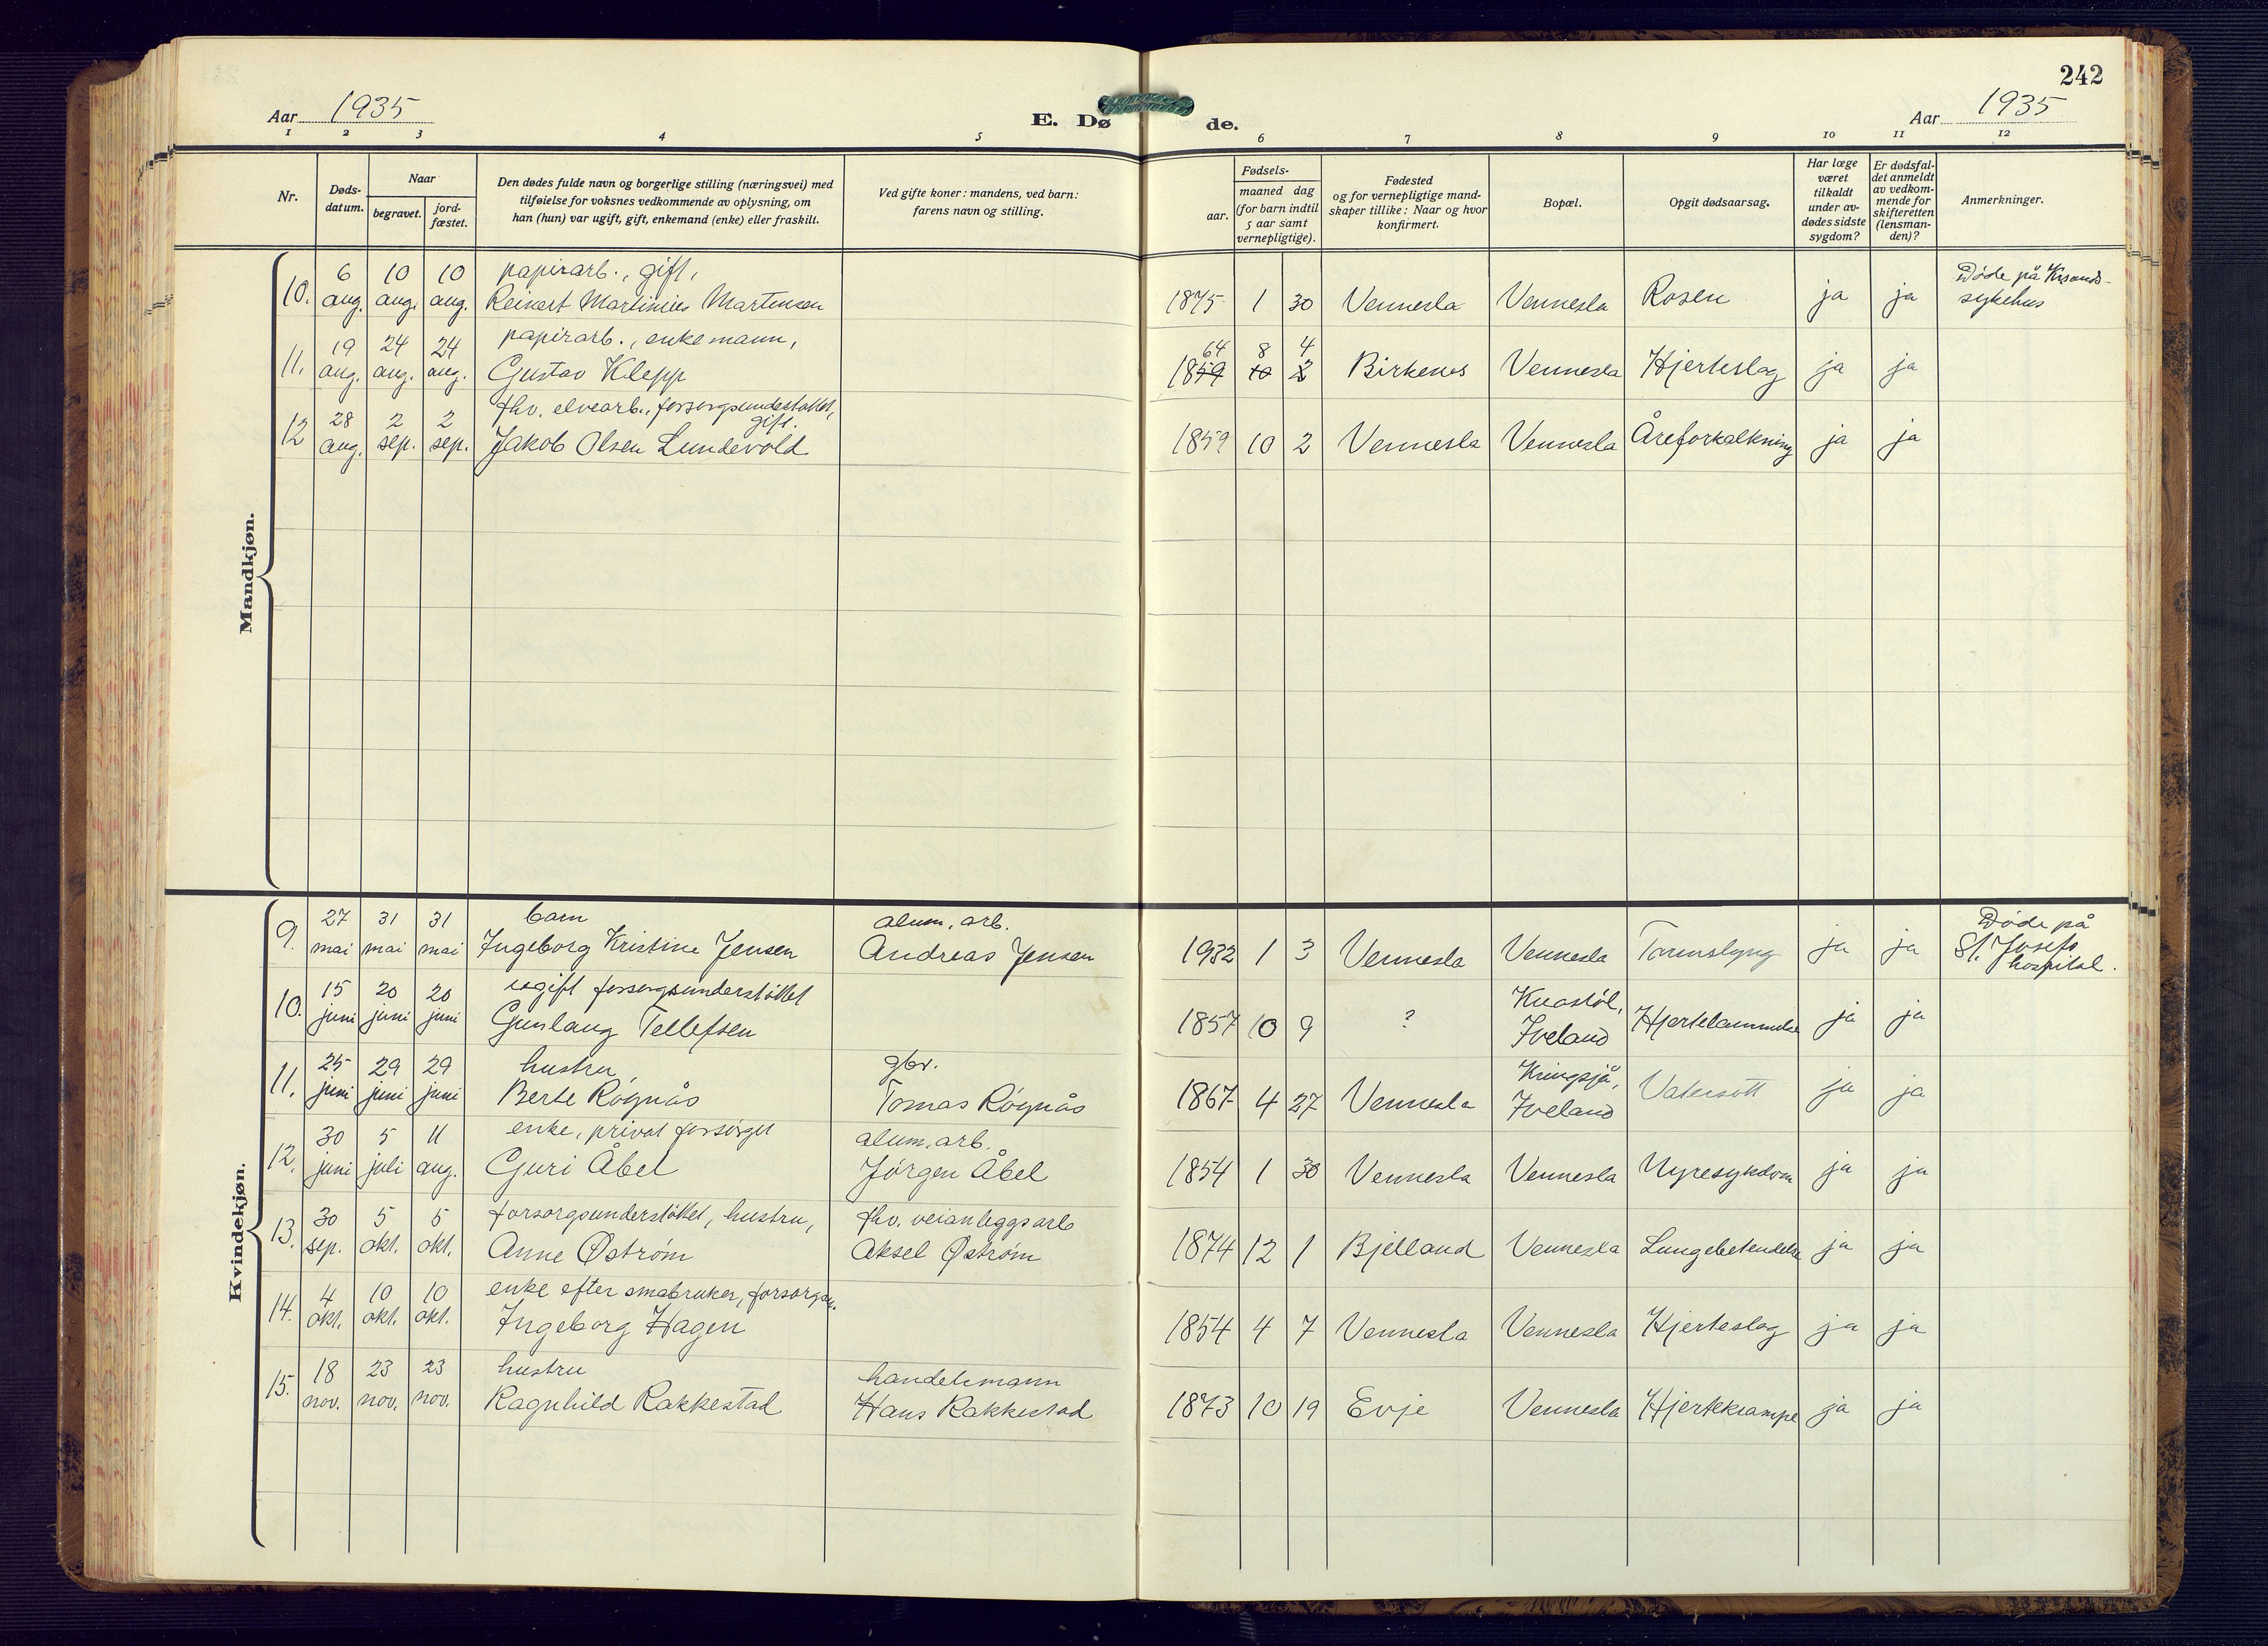 242
Aar 1935
E. Døde.
Aar 1935
1 2 3 4 5 6 7 8 9 10 11 12
Nr.
Døds-
datum.
Naar
begravet.
jord-
fæstet.
Den dødes fulde navn og borgerlige stilling (næringsvei) med
tilføielse for voksnes vedkommende av oplysning, om
han (hun) var ugift, gift, enkemand (enke) eller fraskilt.
Ved gifte koner: mandens, ved barn:
farens navn og stilling.
Fødsels-
aar.
maaned dag
(for barn indtil
5 aar samt
vernepligtige).
Fødested
og for vernepligtige mand-
skaper tillike: Naar og hvor
konfirmert.
Bopæl.
Opgit dødsaarsag.
Har læge
været
tilkaldt
under av-
dødes sidste
sygdom?
Er dødsfal-
det anmeldt
av vedkom-
mende for
skifteretten
(lensman-
den)?
Anmerkninger.
Mandkjøn.
6 10 10 papirarb., gift, Døde på Krsands-
10. aug. aug. aug. Reinert Martinius Martensen 1875 1 30 Vennesla Vennesla Rosen ja ja sykehus
19 24 24 papirarb., enkemann, 64 8 4
11. aug. aug. aug. Gustav Klepp 1859 10 2 Birkenes Vennesla Hjerteslag ja ja
28 2 2 fhv. elvearb., forsorgsunderstøttet,
gift.
12 aug. sep. sep. Jakob Olsen Lundevold 1859 10 2 Vennesla Vennesla Åreforkalkning ja ja
Kvindekjøn.
27 31 31 barn alum. arb. Døde på
9. mai mai mai Ingeborg Kristine Jensen Andreas Jensen 1932 1 3 Vennesla Vennesla Tarmslyng ja ja St. Josefs
hospital.
15 20 20 ugift forsorgsunderstøttet
10. juni juni juni Gunlaug Tellefsen 1857 10 9 ? Iveland Hjertelammelse ja ja
25 29 29 hustru, gbr. Kringsjå,
11. juni juni juni Berte Røgnås Tomas Røgnås 1867 4 27 Vennesla Iveland Vatersott ja ja
30 5 11 enke, privat forsørget alum. arb.
12. juni juli aug. Guri Åbel Jørgen Åbel 1854 1 30 Vennesla Vennesla Nyresykdom ja ja
30 5 5 forsorgsunderstøttet, hustru, fhv. veianleggsarb
13. sep. okt. okt. Anne Øström Aksel Øström 1874 12 1 Bjelland Vennesla Lungebetendelse ja ja
4 10 10 enke efter småbruker, forsorgsu.
14. okt. okt. okt. Ingeborg Hagen 1854 4 7 Vennesla Vennesla Hjerteslag ja ja
18 23 23 hustru handelsmann
15. nov. nov. nov. Ragnhild Rakkestad Hans Rakkestad 1873 10 19 Evje Vennesla Hjertekrampe ja ja